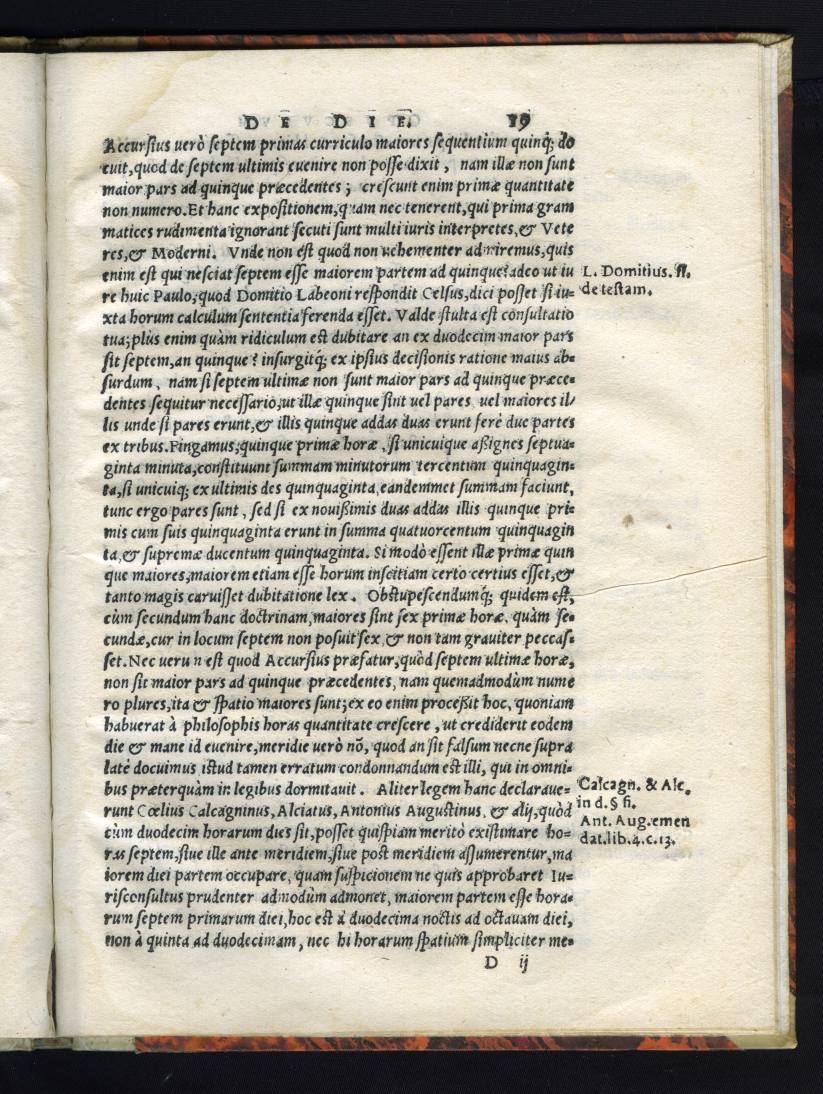 DE DIE. 19
Accursius uerò septem primas curriculo maiores sequentium quinq; do
cuit, quod de septem ultimis euenire non posse dixit, nam illæ non sunt
maior pars ad quinque præcedentes; crescunt enim primæ quantitate
non numero. Et hanc expositionem, quam nec tenerent, qui prima gram
matices rudimenta ignorant secuti sunt multi iuris interpretes, & Vete
res, & Moderni. Vnde non est quod non uehementer admiremus, quis
enim est qui nesciat septem esse maiorem partem ad quinque? adeo ut iu
re huic Paulo, quod Domitio Labeoni respondit Celsus, dici posset si iu=
xta horum calculum sententia ferenda esset. Valde stulta est consultatio
tua; plùs enim quàm ridiculum est dubitare an ex duodecim maior pars
sit septem, an quinque? insurgitq́; ex ipsius decisionis ratione maius ab=
surdum, nam si septem ultimæ non sunt maior pars ad quinque præce=
dentes sequitur necessariò, ut illæ quinque sint uel pares uel maiores il/
lis unde si pares erunt, & illis quinque addas duas erunt ferè duę partes
ex tribus. Fingamus, quinque primæ horæ, si unicuique aßignes septua=
ginta minuta, constituunt summam minutorum tercentum quinquagin=
ta, si unicuiq; ex ultimis des quinquaginta, eandemmet summam faciunt,
tunc ergo pares sunt, sed si ex nouißimis duas addas illis quinque pri=
mis cum suis quinquaginta erunt in summa quatuorcentum quinquagin
ta, & supremæ ducentum quinquaginta. Si modò essent illæ primæ quin
que maiores, maiorem etiam esse horum inscitiam certo certius esset, &
tanto magis caruisset dubitatione lex. Obstupescendumq́; quidem est,
cùm secundum hanc doctrinam, maiores sint sex primæ horæ, quàm se=
cundæ, cur in locum septem non posuit sex, & non tam grauiter peccas=
set. Nec uerum est quod Accursius præfatur, quòd septem ultimæ horæ,
non sit maior pars ad quinque præcedentes, nam quemadmodùm nume
ro plures, ita & spatio maiores sunt; ex eo enim proceßit hoc, quoniam
habuerat à philosophis horas quantitate crescere, ut crediderit eodem
die & mane id euenire, meridie uerò nõ, quod an sit falsum necne supra
latè docuimus, istud tamen erratum condonnandum est illi, qui in omni=
bus præterquàm in legibus dormitauit. Aliter legem hanc declaraue=
runt Cœlius Calcagninus, Alciatus, Antonius Augustinus, & alij, quòd
cùm duodecim horarum dies sit, posset quispiam meritò existimare ho=
ras septem, siue ille ante meridiem, siue post meridiem assumerentur, ma
iorem diei partem occupare, quam suspicionem ne quis approbaret Iu=
risconsultus prudenter admodùm admonet, maiorem partem esse hora=
rum septem primarum diei, hoc est à duodecima noctis ad octauam diei,
non à quinta ad duodecimam, nec hi horarum spatium simpliciter me=
D ij
L. Domitius. ff.
de testam.
Calcagn. & Alc.
in d. § fi.
Ant. Aug. emen
dat. lib. 4. c. 13.